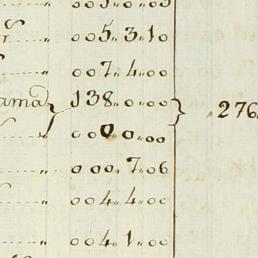 005..3..10
007..4..00
ama 138..0..00 } ..276
000..0..00
000..7..06
004..4..00
004..1..00